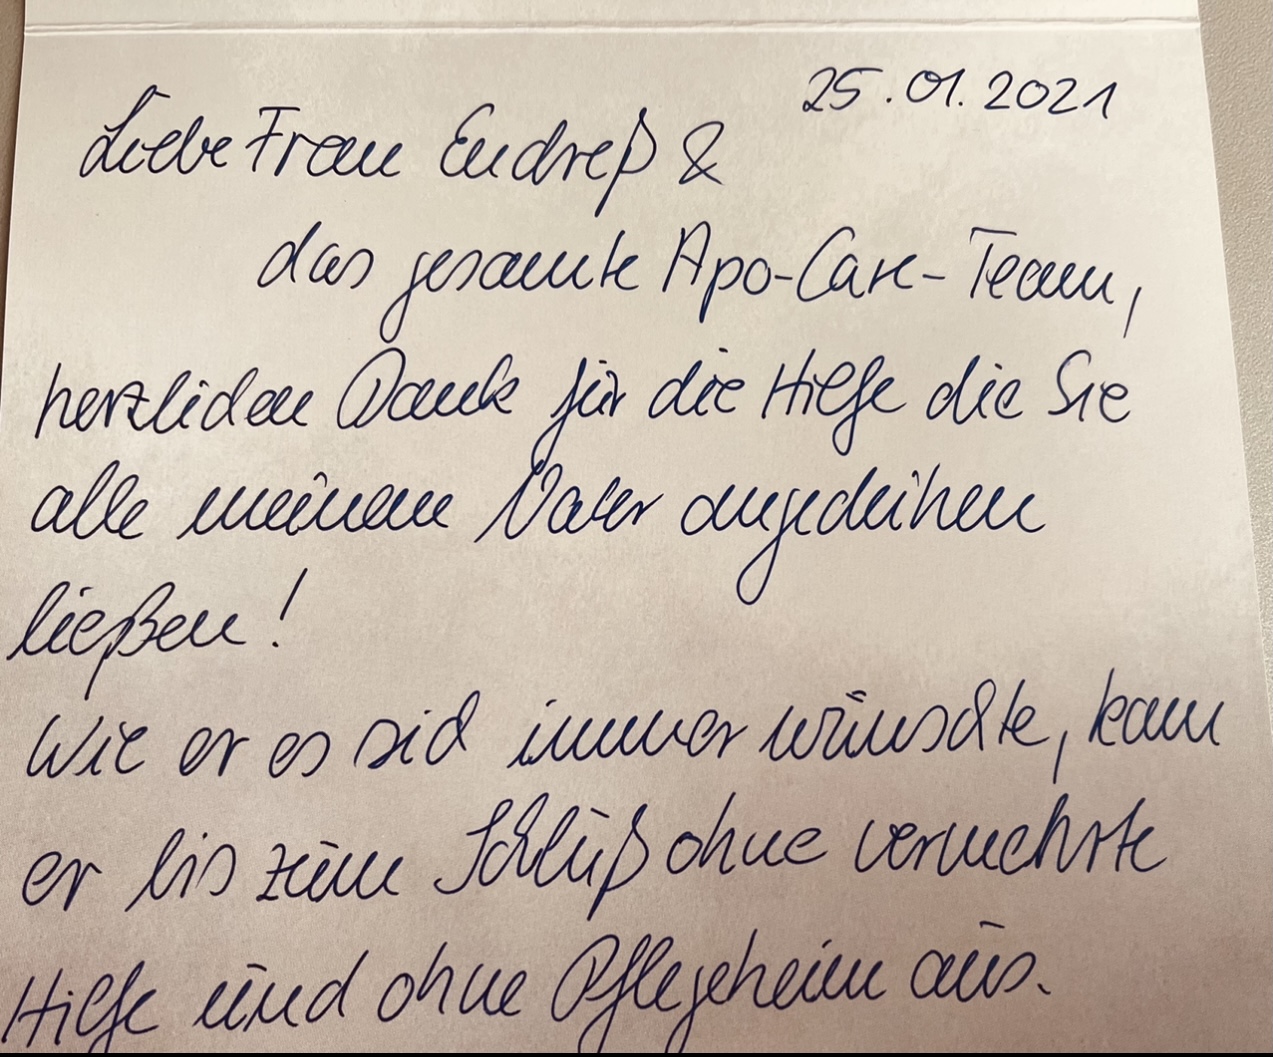 25.01.2021
Liebe Frau Endreß &
das gesamte Apo-Care-Team,
herzlichen Dank für die Hilfe die Sie
alle meinem Vater angedeihen
ließen!
Wie er es sich immer wünschte, kam
er bis zum Schluß ohne vermehrte
Hilfe und ohne Pflegeheim aus.